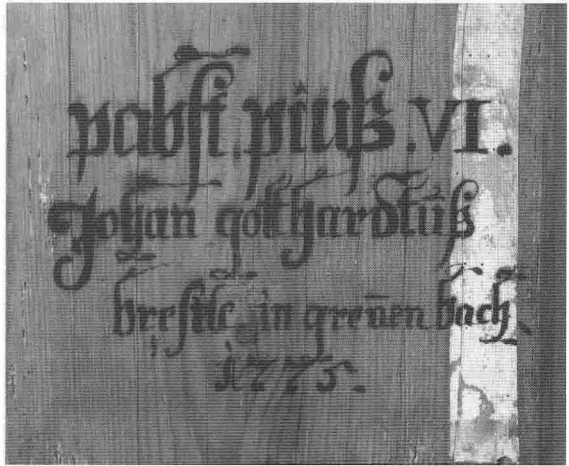 pabst piuß. VI.
Johan gotthardtuß
in grenen bach
1775.